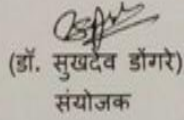 (डॉ. सुखदेव डोंगरे)
संयोजक